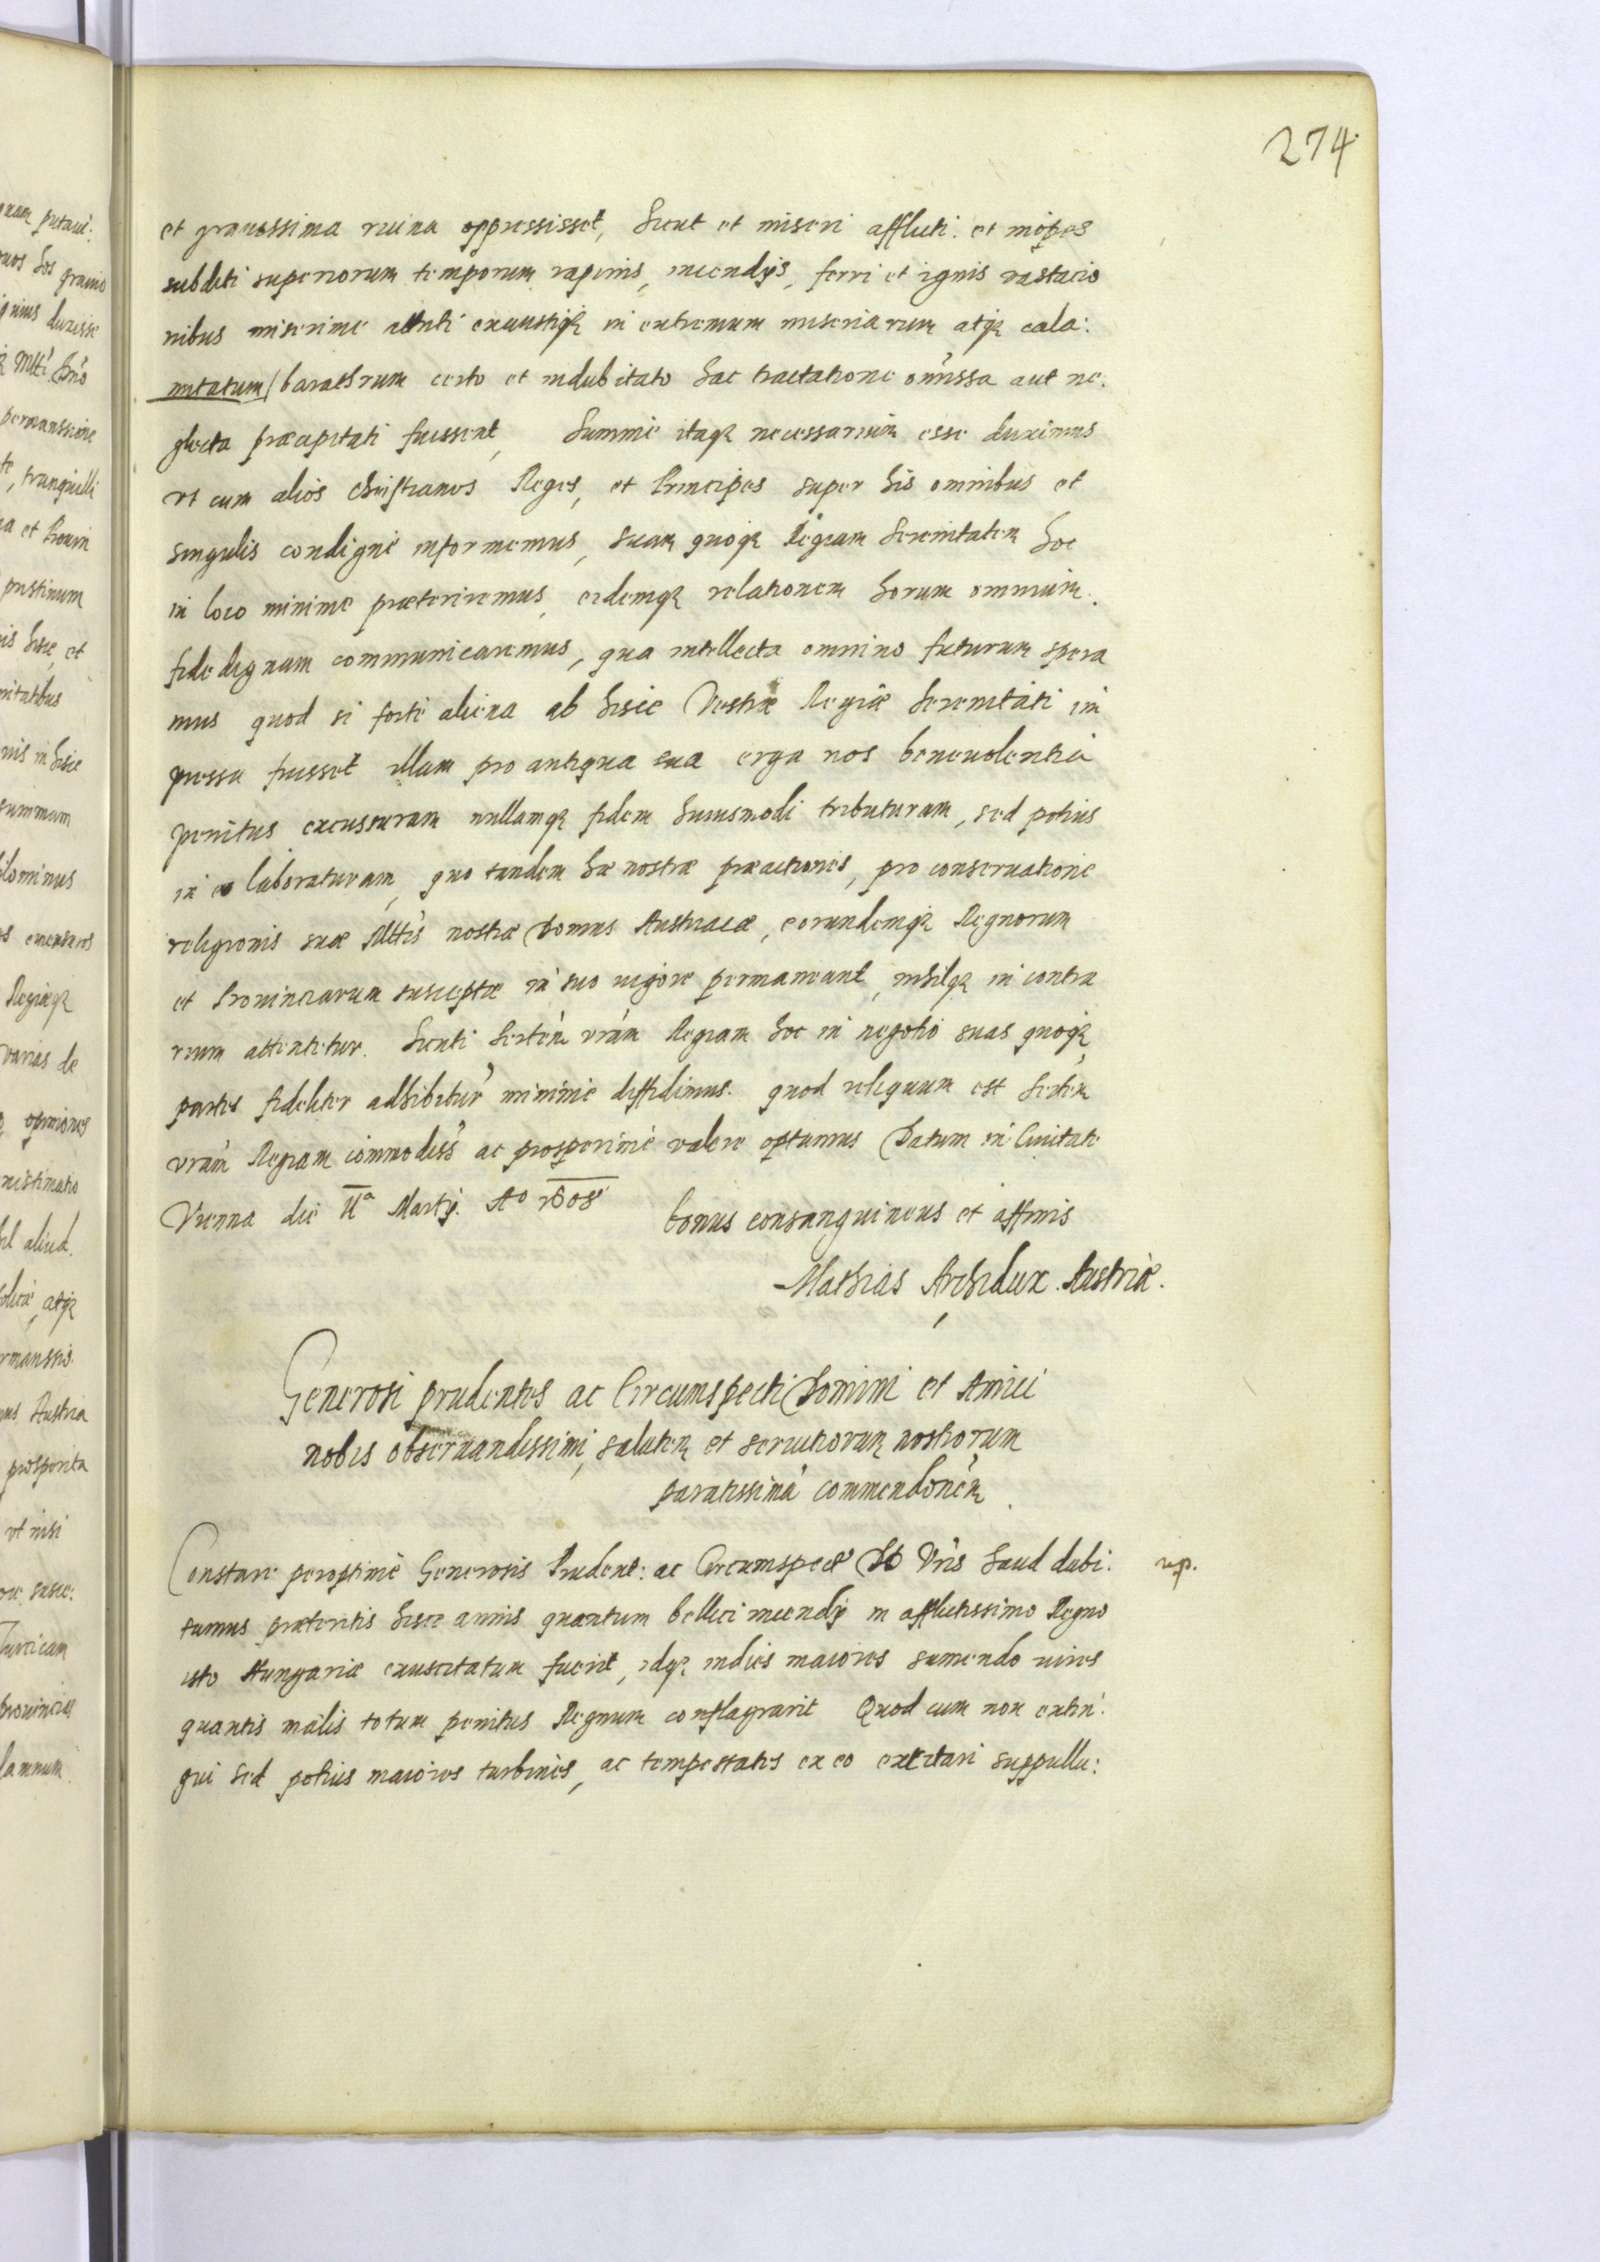 274
et grauissima ruina oppressisset, Sicut et miseri afflicti et inopes
subditi superiorum temporum rapinis, incendijs, ferri et ignis vastatio
nibus miserimé attriti exaustiq; in extremum miseriarum atq; cala:
mitatum barathrum certo et indubitato hac tractatione omissa aut ne:
glecta præcipitati fuissent, Summé itaq; necessarium esse duximus
vt cum alios Christianos Reges, et Principes super his omnibus et
singulis condigné informemus, suam quoq; Regiam Serenitatem hoc
in loco minimé præteriremus, eidemq; relationem horum omnium
fide dignam communicaremus, qua intellecta omnino futurum spera
mus quod si forté aliena ab hisce Vestræ Regiæ Serenitati im
pressa fuisset illam pro antiqua sua erga nos beneuolentia
penitus excussuram nullamq; fidem huiusmodi tributuram, sed potius
in eo laboraturam, quo tandem hæ nostræ præactiones, pro conseruatione
religionis suæ Mttis nostræ Domus Austriacæ, eorundemq; Regnorum
et Prouinciarum susceptæ in suo uigore permaneant, nihilq; in contra
rium attentetur. Sicuti Sertem vram Regiam hoc in negotio suas quoq;
partes fideliter adhibitur minimé diffidimus. quod reliquum est Sertem
vram Regiam commodiss ac prosperimé valere optamus Datum in Ciuitate
Vienna die IIa Martij. Ao 1608
bonus consanguineus et affinis
Mathias Archidux Austriæ.
Generosi prudentes ac Circumspecti Domini et Amici
nobis obseruandissimi, salutem et seruitiorum nostrorum
paratissima commendonem
Constare peroptimé Generosis Prudent: ac Circumspect D Vris haud dubi:
tamus præteritis hisce annis quantum bellici incendij in afflictissimo Regno
isto Hungariæ exuscitatum fuerit, idq; indies maiores sumendo uires
quantis malis totum penitus Regnum conflagrarit Quod cum non extin:
gui sed potius maiores turbines, ac tempestates ex eo excitari suppullu: